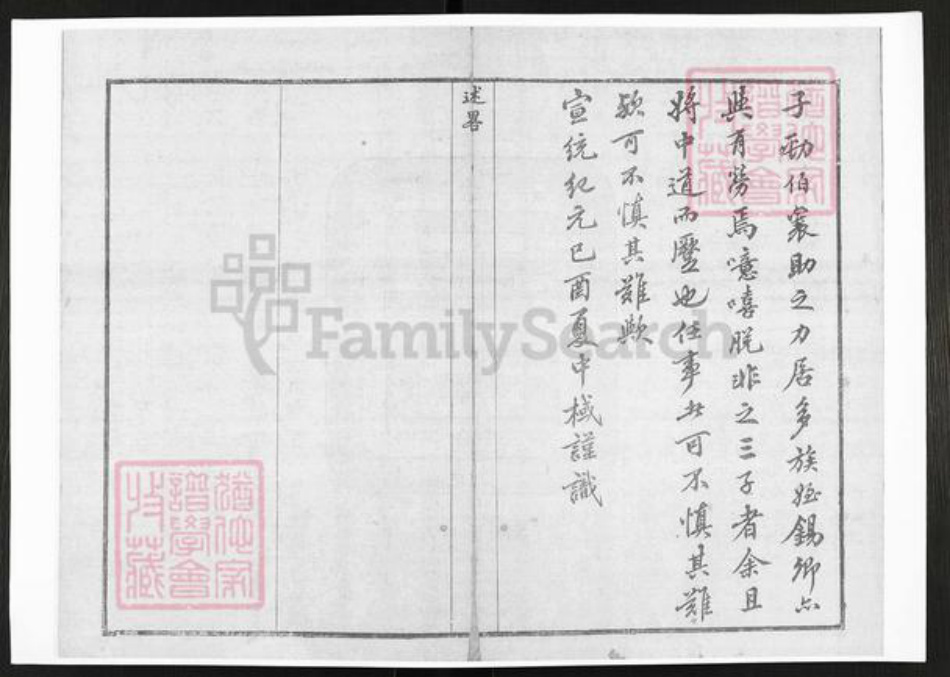 子勁伯襄助之力居多族姪錫卿亦
與有勞焉噫嘻脫非之三子者余且
將中道而壓也任事者可不慎其難
歟可不慎其難歟
宣統紀元己酉夏中棫謹識
述畧
猶他家
譜學會
收藏
猶他家
譜學會
收藏
FamilySearch